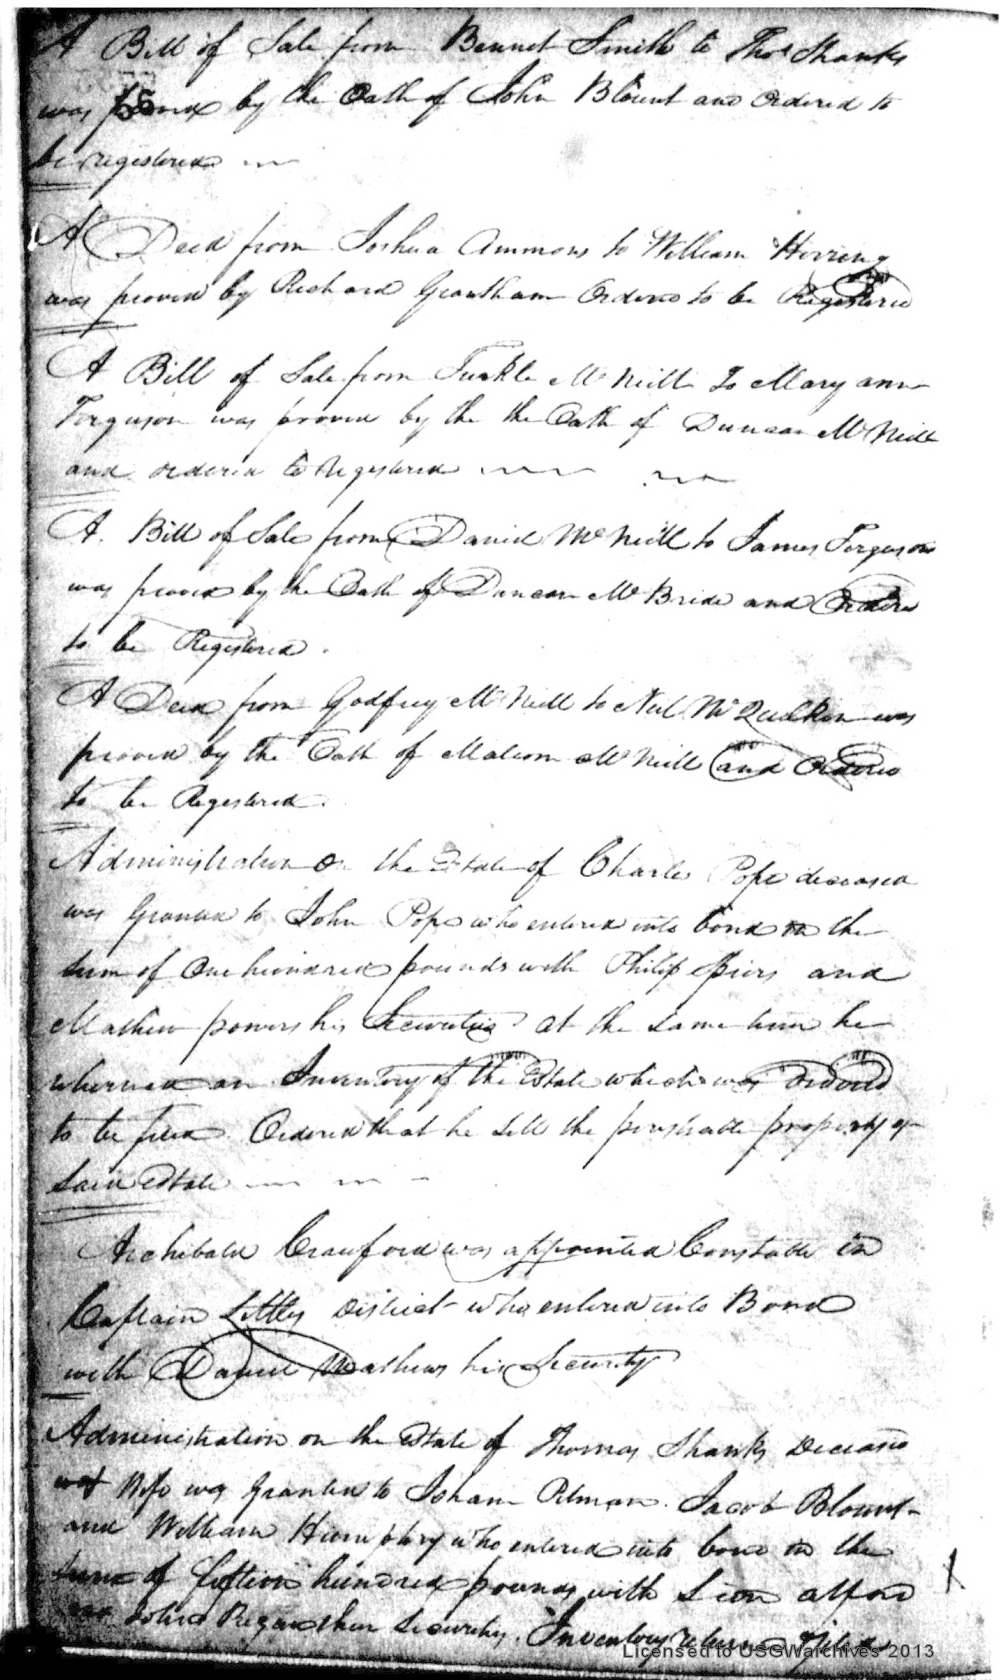 A Bill of Sale from Bennet Smith to Thos Shanks
was proved by the Oath of John Blount and Ordered to
be registered
A Deed from Joshua Ammons to William Herring
was proved by Richard Grantham Ordered to be Registered
A Bill of Sale from Turkle McNeill To Mary ann
Ferguson was proved by the the Oath of Duncan McNeill
and ordered to Registered
A Bill of Sale from David McNeill to James Ferguson
was proved by the Oath of Duncan McBride and Ordered
to be Registered.
A Deed from Godfrey McNeill to Neil McQulken was
proved by the Oath of Malcom McNeill and Ordered
to be Registered.
Administration on the Estate of Charles Pope deceased
was Granted to John Pope who entered into bond in the
sum of One hundred pounds with Philip Piers and
Mathew powers his Securities at the same time he
an Inventory of the Estate which was ordered
to be filed. Ordered that he sell the perishable property of
said Estate
Archibald Crawford was appointed Constable in
Captain Littles District who entered into Bond
with Daniel Mathews his Security
Administration on the Estate of Thomas Shanks Deceased
Wife was Granted to Pitman. Jacob Blount
and William Humphry who entered into bond in the
sum of fifteen hundred pounds with alford
and their Security. Inventory returned
Licensed to USGWarchives 2013